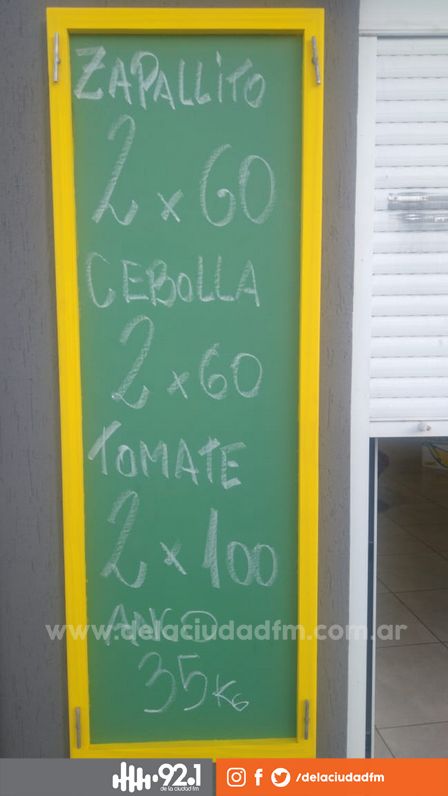 ZAPALLITO
2 x 60
CEBOLLA
2 x 60
TOMATE
2 x 100
ANCO
www.delaciudadfm.com.ar
35 KG
92.1
de la ciudad fm
/delaciudadfm